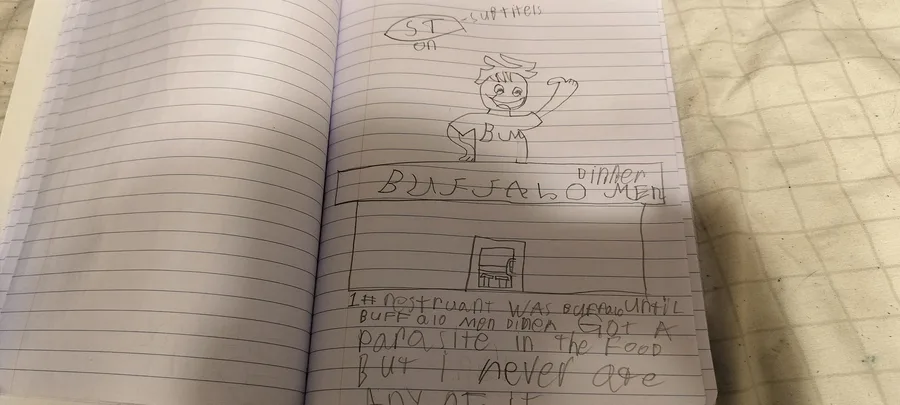 ST
-subtitels
on
BUM
Dinner
BUFFALO MEN
1# restruant was Buffalo until
BUFFalo Men Diner Got A
parasite in the Food
But I never ate
Any of it